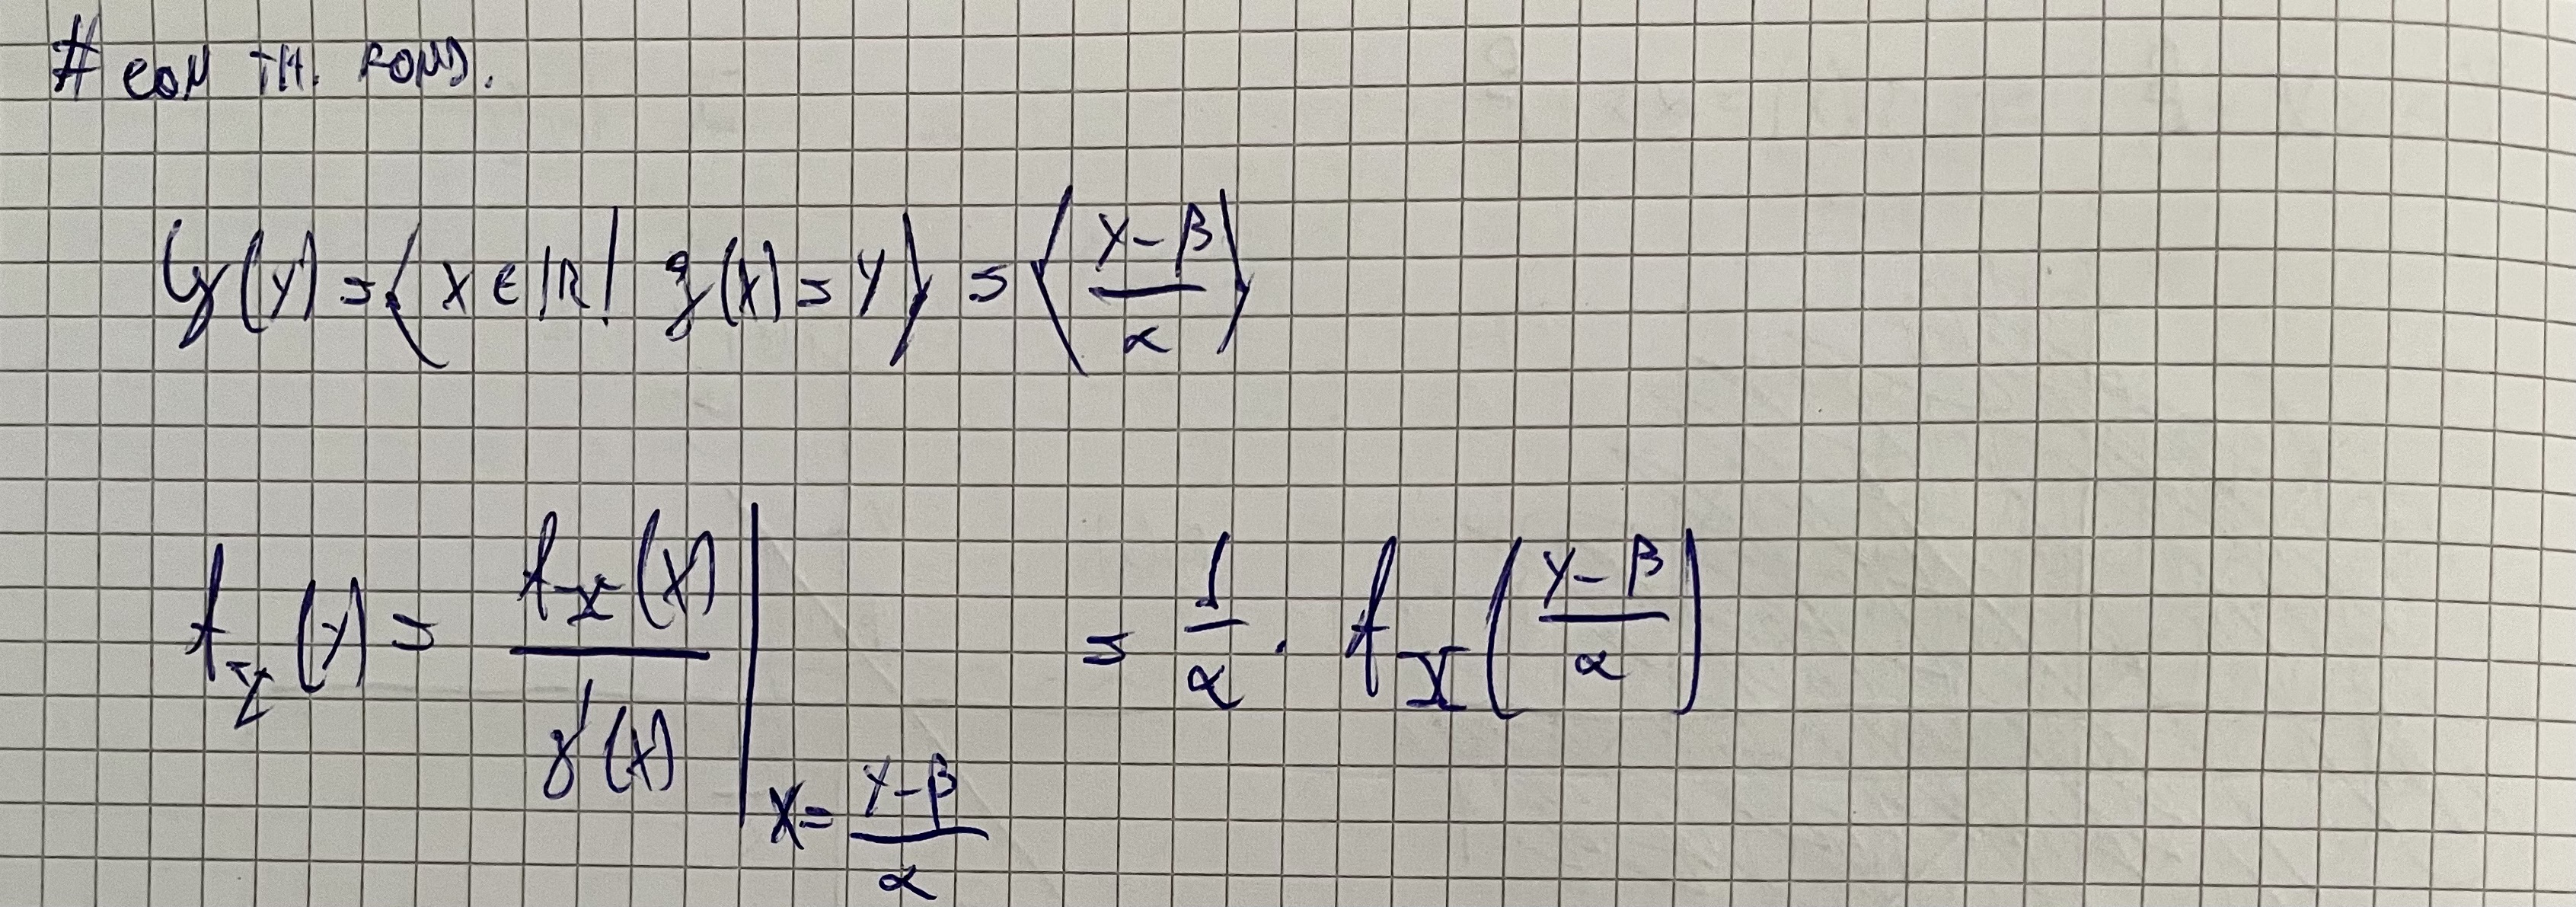 # CON TH. FOND.
𝒢(y) = {x ∈ ℝ | g(x) = y} = {(y-β)/α}
f_Y(y) = f_X(x)/g'(x) |_{x = (y-β)/α} = 1/α · f_X((y-β)/α)